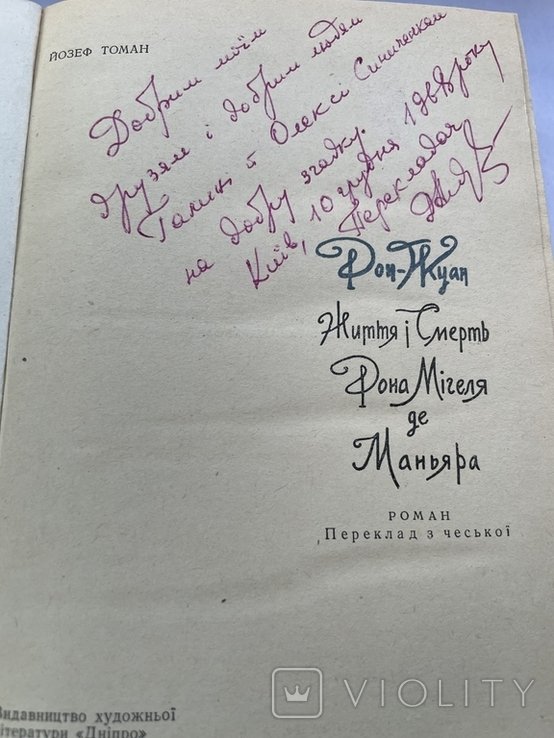 ЙОЗЕФ ТОМАН
Добрим моїм
друзям і добрим людям
Галині й Олексі Синиченкам
на добру згадку.
Київ, 10 грудня 1968 року
Перекладач
Дон-Жуан
Життя і Смерть
Дона Мігеля
де
Маньяра
РОМАН
Переклад з чеської
Видавництво художньої
літератури «Дніпро»
VIOLITY